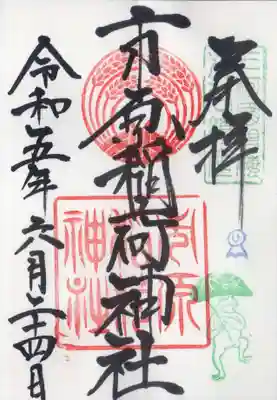 奉拝
市原稲荷神社
令和五年六月二十四日
市原
神社